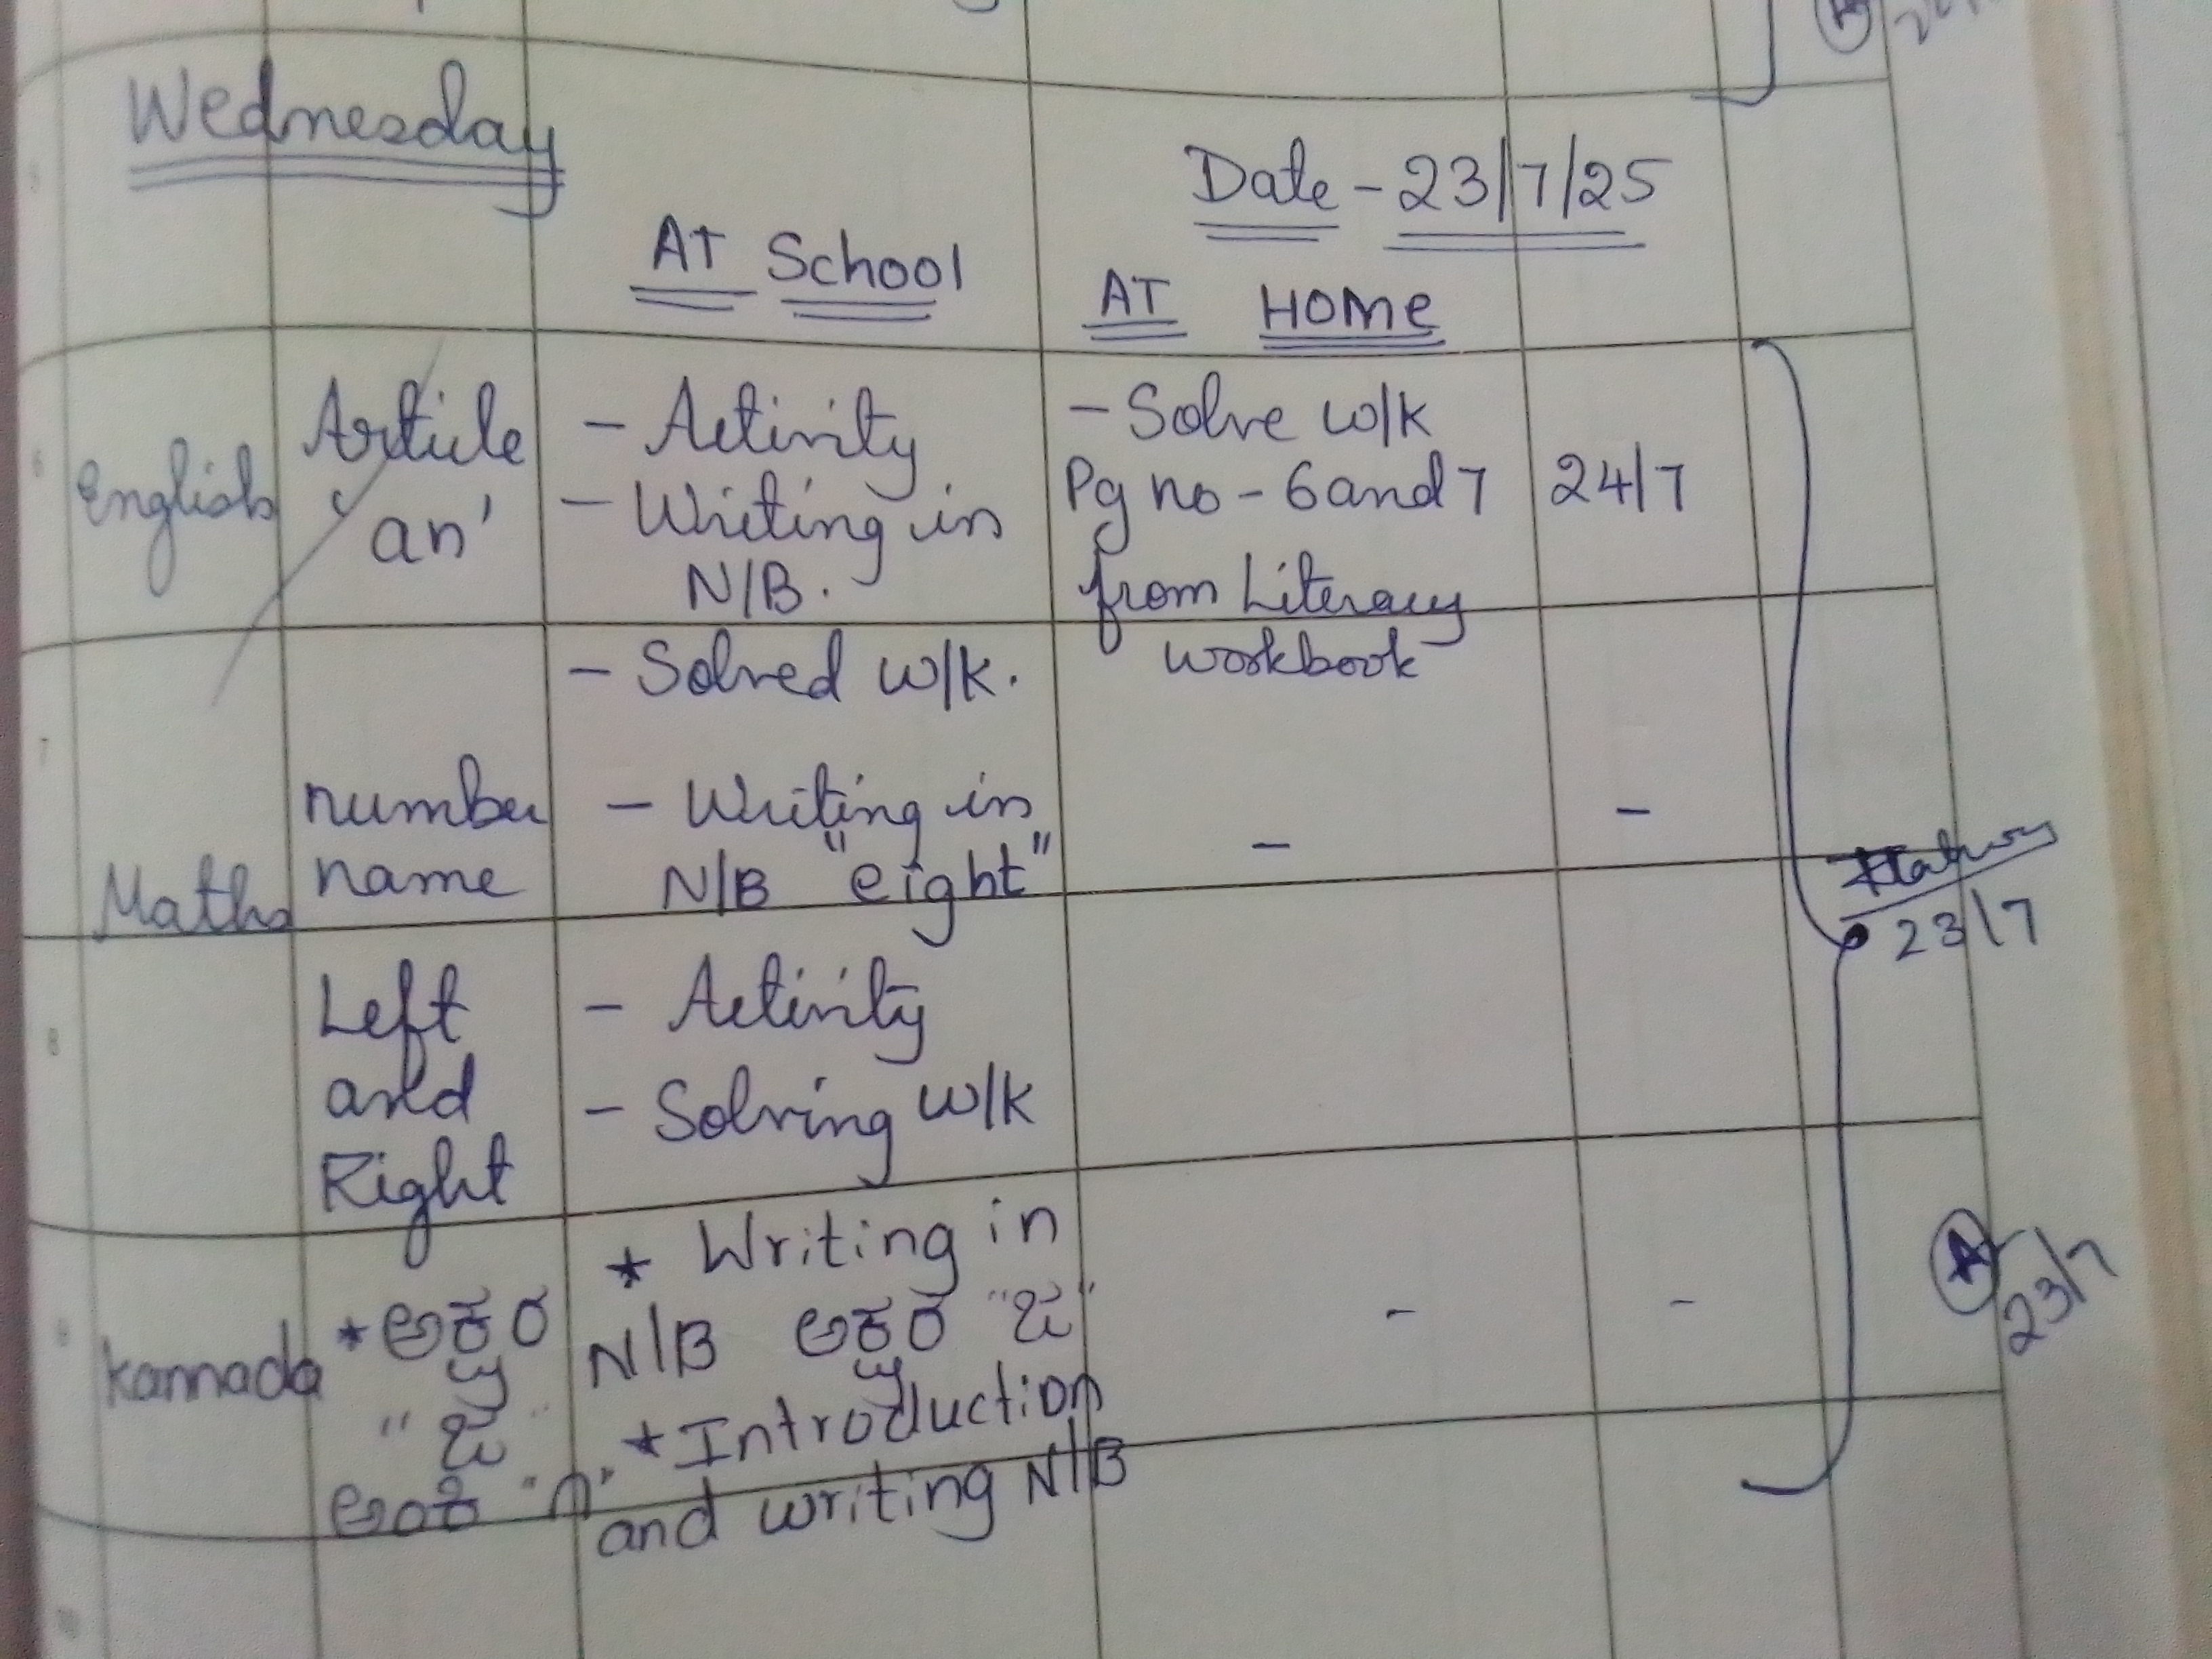 Wednesday
Date - 23/7/25
AT School
AT HOMe
English
Article
'an'
- Activity
- Writing in
N/B.
- Solved w/k.
- Solve w/k
Pg no - 6 and 7
from Literacy
workbook
24/7
Maths
number
name
- Writing in
N/B "eight"
-
-
23/7
Left
and
Right
- Activity
- Solving w/k
kannada
* ಅಕ್ಷರ
"ಜ"
ಅಂಕಿ "೧"
* Writing in
N/B ಅಕ್ಷರ "ಜ"
* Introduction
and writing N/B
-
-
23/7